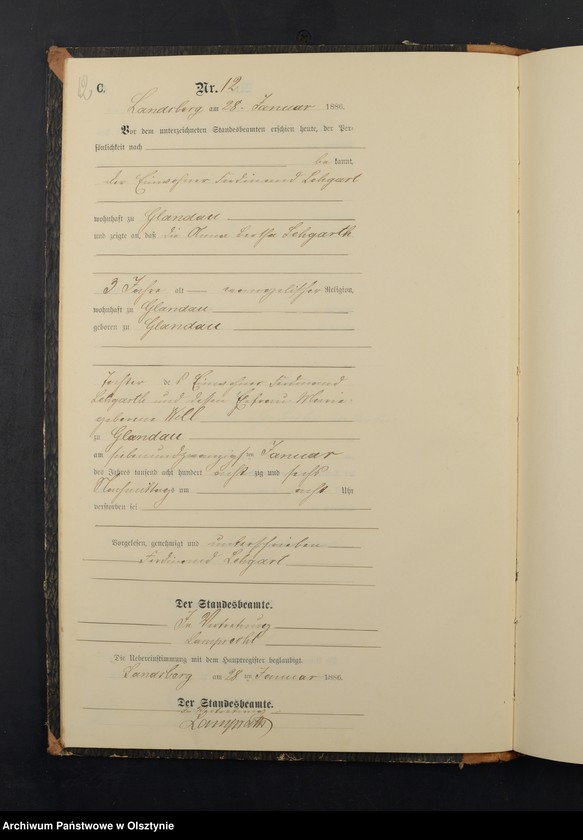 12
C.
Nr. 12
Landsberg am 28. Januar 1886.
Vor dem unterzeichneten Standesbeamten erschien heute, der Per-
sönlichkeit nach
be kannt,
der Einwohner Ferdinand Lehgart
wohnhaft zu Glandau
und zeigte an, daß die Anna Bertha Lehgarth
3 Jahre alt evangelischer Religion,
wohnhaft zu Glandau
geboren zu Glandau
Tochter de s Einwohner Ferdinand
Lehgarth und dessen Ehefrau Marie
geborene Will
zu Glandau
am siebenundzwanzigsten Januar
des Jahres tausend acht hundert acht zig und sechs
Nachmittags um acht Uhr
verstorben sei
Vorgelesen, genehmigt und unterschrieben
Ferdinand Lehgart
Der Standesbeamte.
In Vertretung
Lamprecht
Die Uebereinstimmung mit dem Hauptregister beglaubigt.
Landsberg am 28 ten Januar 1886.
Der Standesbeamte.
In Vertretung
Lamprecht
Archiwum Państwowe w Olsztynie